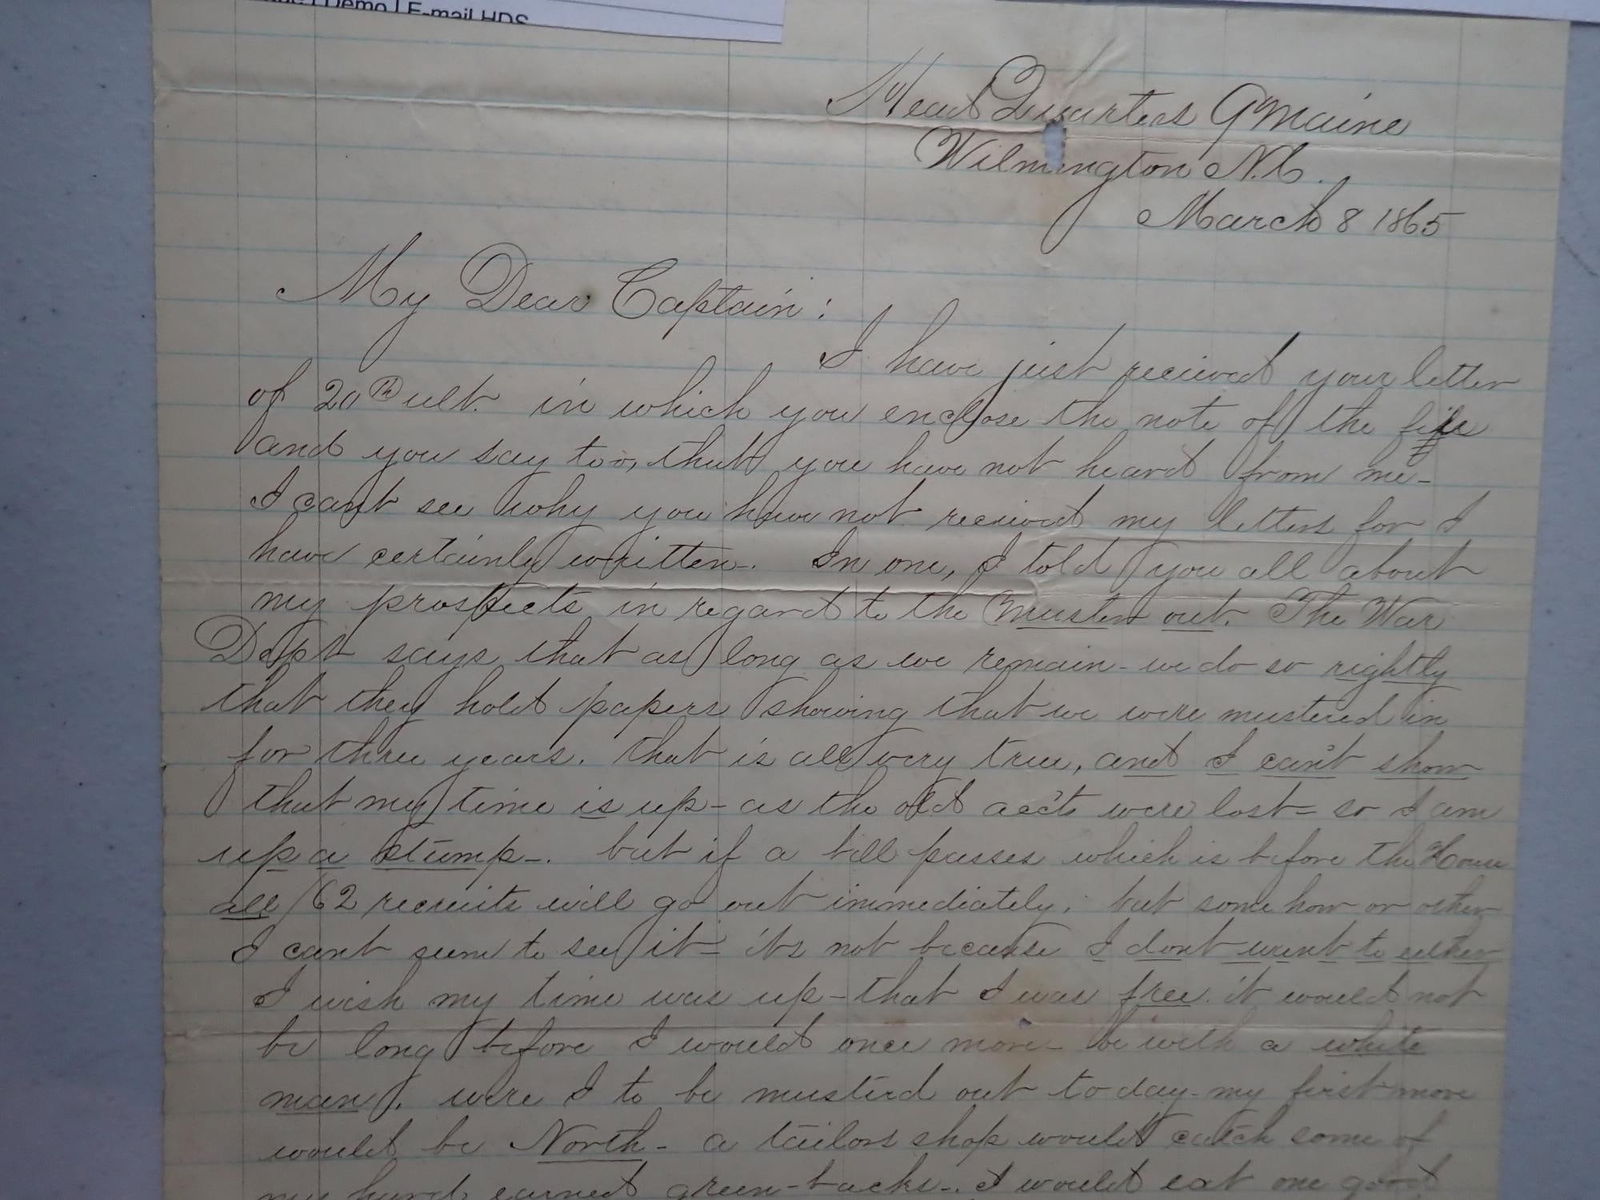 Demo | E-mail HDS
Head Quarters 9 Maine
Wilmington N.C.
March 8 1865
My Dear Captain:
I have just recieved your letter
of 20th ult. in which you enclose the note of the
and you say too, that you have not heard from me-
I cant see why you have not recieved my letters for I
have certainly written-. In one, I told you all about
my prospects in regard to the muster out. The War
Dept says that as long as we remain - we do so rightly
that they hold papers showing that we were mustered in
for three years. that is all very true, and I can't show
that my time is up - as the old acc'ts were lost = so I am
up a stump-. but if a bill passes which is before the House
all 62 recruits will go out immediately; but some how or other
I cant seem to see it - its not because I dont want to either
I wish my time was up - that I was free. it would not
be long before I would once more - be with a white
man. were I to be musterd out to day - my first move
would be North - a tailors shop would catch some of
my hard earned green-backs-. I would eat one good